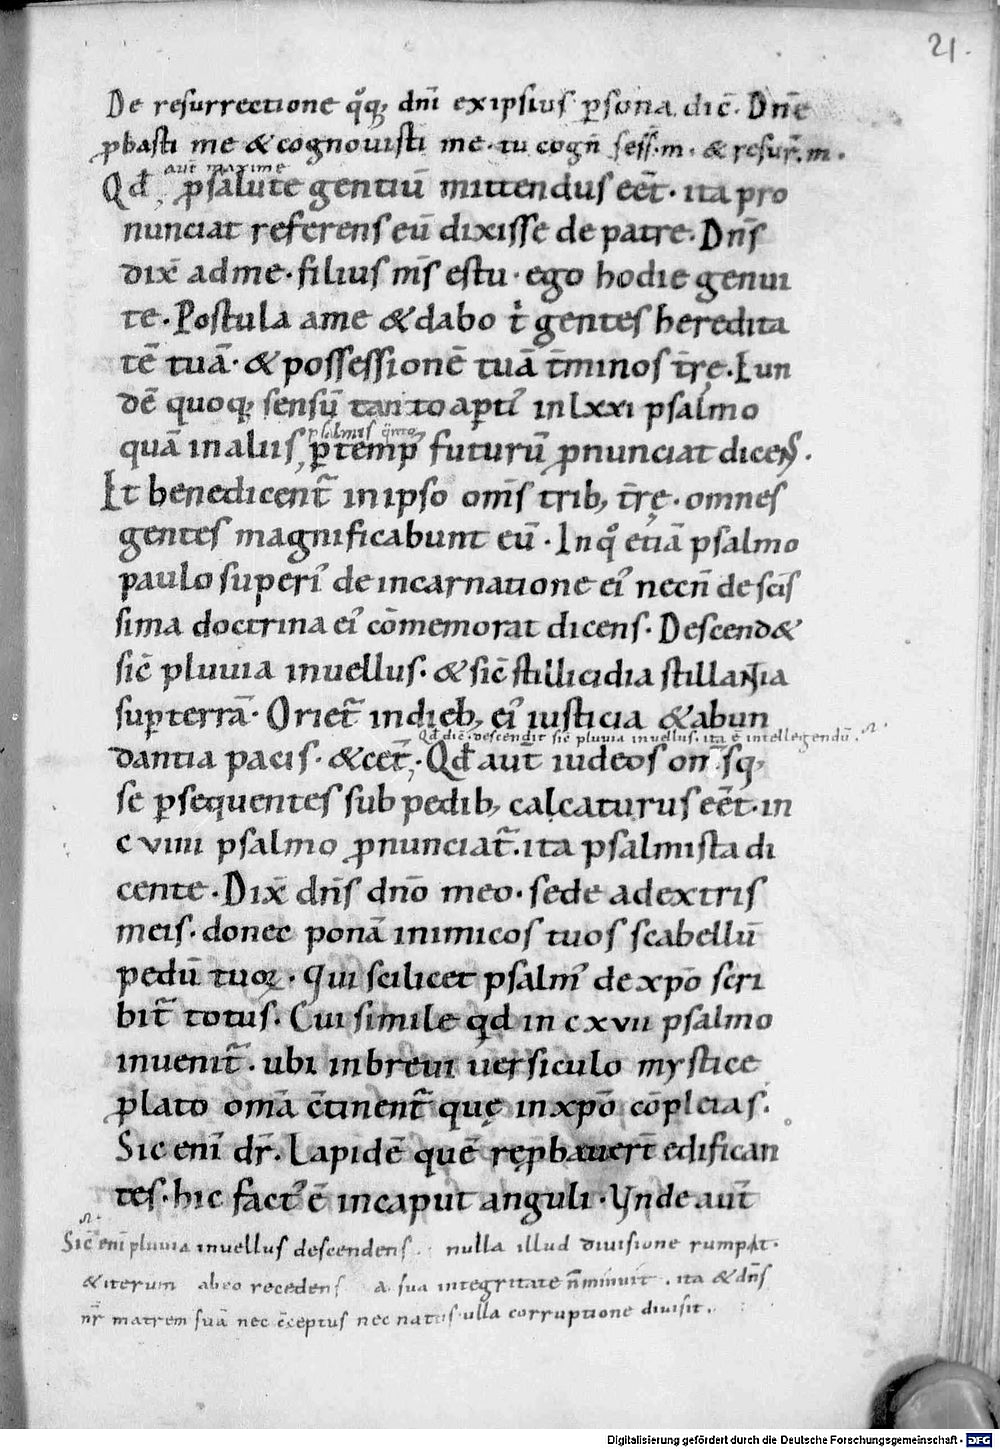 21.
De resurrectione q̊q; dn̄i ex ipsius ꝑsona dic̄. Dn̄e
ꝓbasti me & cognouisti me. tu cogn̄ sess̄. m. & resur̄. m.
aut̄ maxime
Qd̄ ꝑ salute gentiū mittendus eēt. ita pro
nunciat referens eū dixisse de patre. Dn̄s
dix̄ ad me. filius m̄s es tu. ego hodie genui
te. Postula a me & dabo t̄ gentes heredita
tē tuā. & possessionē tuā t̄minos t̄rę. Eun
dē quoq; sensū tanto aꝑti᷒ in lxxi psalmo
psalmis
quā in aliis, ꝑ temp᷒ futurū ꝓnunciat dicens.
Et benedicent᷑ in ipso om̄s trib; t̄rę. omnes
gentes magnificabunt eū. In q̊ etiā psalmo
paulo superi᷒ de incarnatione ei᷒ necn̄ de sc̄is
sima doctrina ei᷒ cōmemorat dicens. Descend&
sic̄ pluuia in uellus. & sic̄ stillicidia stillantia
suꝑ terrā. Oriet᷑ in dieb; ei᷒ iusticia & abun
Qd̄ dic̄. descendit sic̄ pluuia in uellus. ita ē intellegendū.
dantia pacis. & cet̄. Qd̄ aut̄ iudeos om̄sq;
se ꝑsequentes sub pedib; calcaturus eēt. in
c viiii psalmo ꝓnunciat᷑. ita psalmista di
cente. Dix̄ dn̄s dn̄o meo. sede a dextris
meis. donec ponā inimicos tuos scabellū
pedū tuoꝝ. Qui scilicet psalm᷒ de xp̄o scri
bit᷑ totus. Cui simile qd̄ in c xvii psalmo
inuenit᷑. ubi in breui uersiculo mystice
ꝓlato om̄a c̄tinent᷑ quę in xp̄o cōpleta s̄.
Sic eni̅ dr̄. Lapidē quē reꝓbauer̄t edifican
tes. hic fact᷒ ē in caput anguli. Vnde aut̄
Sic̄ eni̅ pluuia in uellus descendens. nulla illud diuisione rumpit.
& iterum ab eo recedens a sua integritate n̄ minuit. ita & dn̄s
nr̄ matrem suā nec c̄ceptus nec natus ulla corruptione diuisit.
Digitalisierung gefördert durch die Deutsche Forschungsgemeinschaft - DFG